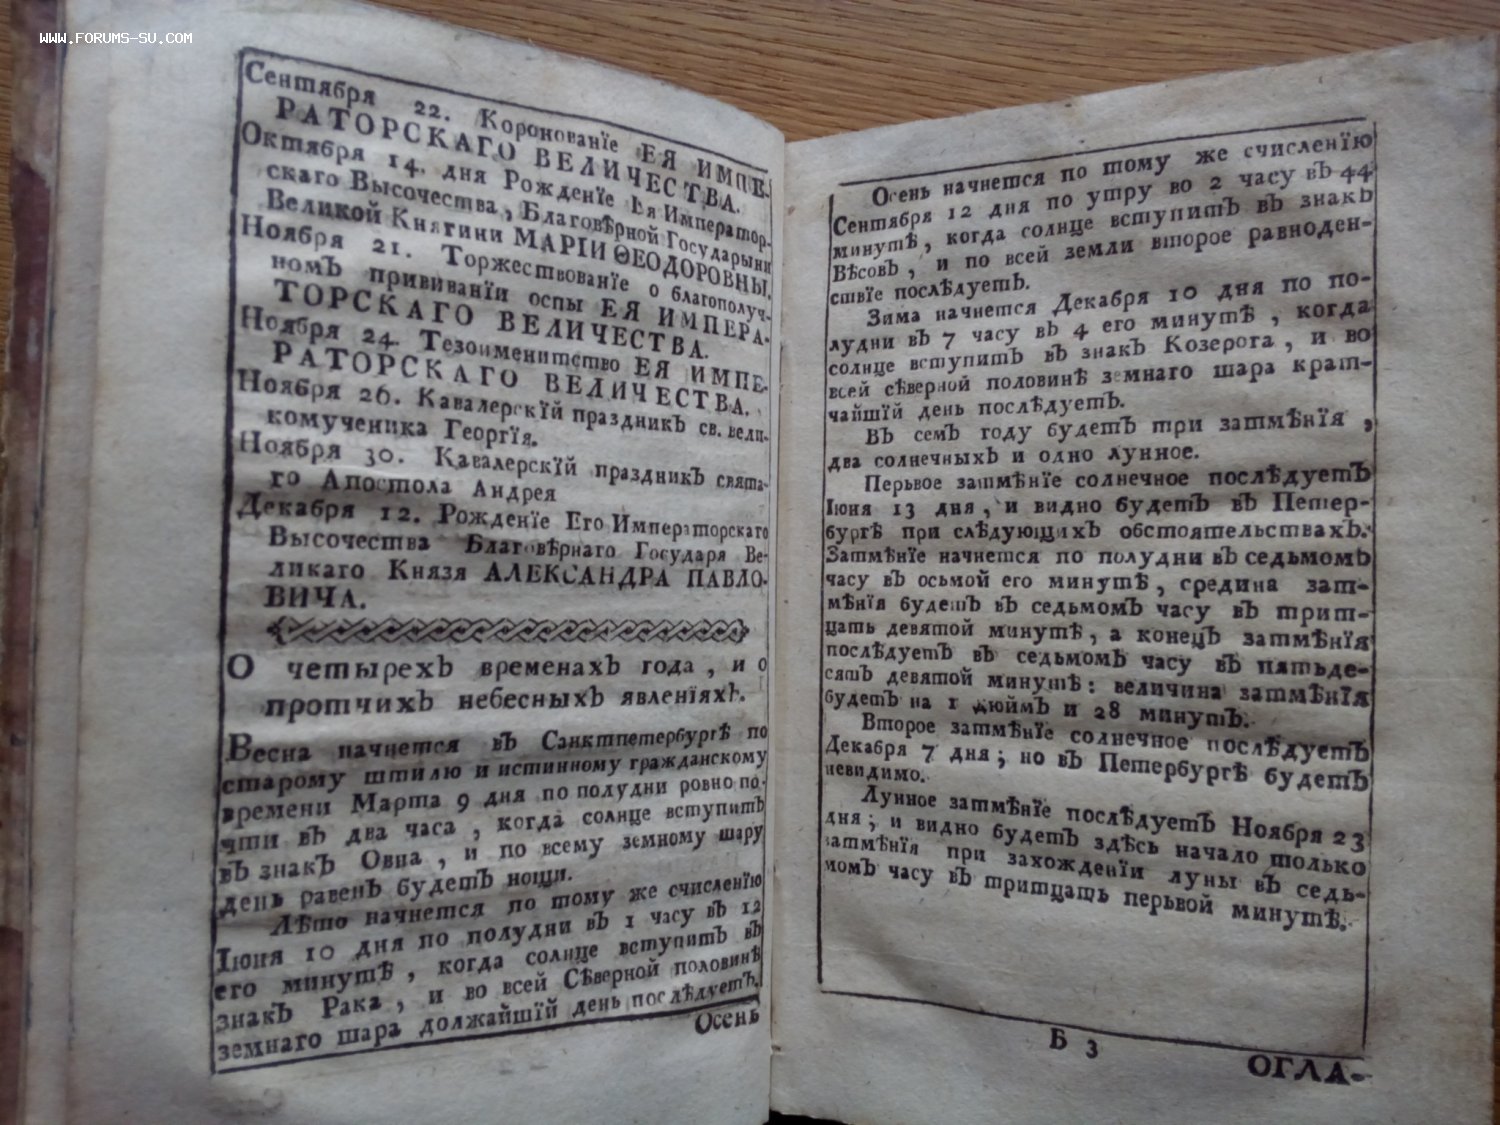 WWW.FORUMS-SU.COM
Сентября 22. Коронованїе ЕЯ ИМПЕ-
РАТОРСКАГО ВЕЛИЧЕСТВА.
Октября 14. дня Рожденїе Ея Император-
скаго Высочества, Благовѣрной Государыни
Великой Княгини МАРІИ ѲЕОДОРОВНЫ.
Ноября 21. Торжествованїе о благополуч-
номъ прививанїи оспы ЕЯ ИМПЕРА-
ТОРСКАГО ВЕЛИЧЕСТВА.
Ноября 24. Тезоименитство ЕЯ ИМПЕ-
РАТОРСКАГО ВЕЛИЧЕСТВА.
Ноября 26. Кавалерскїй праздникъ св. вели-
комученика Георгїя.
Ноября 30. Кавалерскїй праздникъ свята-
го Апостола Андрея
Декабря 12. Рожденїе Его Императорскаго
Высочества Благовѣрнаго Государя Ве-
ликаго Князя АЛЕКСАНДРА ПАВЛО-
ВИЧА.
О четырехъ временахъ года, и о
протчихъ небесныхъ явленїяхъ.
Весна начнется въ Санктпетербургѣ по
старому штилю и истинному гражданскому
времени Марта 9 дня по полудни ровно по-
чти въ два часа, когда солнце вступитъ
въ знакъ Овна, и по всему земному шару
день равенъ будетъ нощи.
Лѣто начнется по тому же счисленїю
Іюня 10 дня по полудни въ 1 часу въ 12
его минутѣ, когда солнце вступитъ въ
знакъ Рака, и во всей Сѣверной половинѣ
земнаго шара должайшїй день послѣдуетъ.
Осень
Осень начнется по тому же счисленїю
Сентября 12 дня по утру во 2 часу въ 44
минутѣ, когда солнце вступитъ въ знакъ
Вѣсовъ, и по всей земли второе равноден-
ствїе послѣдуетъ.
Зима начнется Декабря 10 дня по по-
лудни въ 7 часу въ 4 его минутѣ, когда
солнце вступитъ въ знакъ Козерога, и во
всей сѣверной половинѣ земнаго шара крат-
чайшїй день послѣдуетъ.
Въ семъ году будетъ три затмѣнїя,
два солнечныхъ и одно лунное.
Перьвое затмѣнїе солнечное послѣдуетъ
Іюня 13 дня, и видно будетъ въ Петер-
бургѣ при слѣдующихъ обстоятельствахъ.
Затмѣнїе начнется по полудни въ седьмомъ
часу въ осьмой его минутѣ, средина зат-
мѣнїя будетъ въ седьмомъ часу въ трит-
цать девятой минутѣ, а конецъ затмѣнїя
послѣдуетъ въ седьмомъ часу въ пятьде-
сятъ девятой минутѣ: величина затмѣнїя
будетъ на 1 дюймъ и 28 минутъ.
Второе затмѣнїе солнечное послѣдуетъ
Декабря 7 дня; но въ Петербургѣ будетъ
невидимо.
Лунное затмѣнїе послѣдуетъ Ноября 23
дня; и видно будетъ здѣсь начало только
затмѣнїя при захожденїи луны въ седь-
момъ часу въ тритцать перьвой минутѣ.
Б 3
ОГЛА-